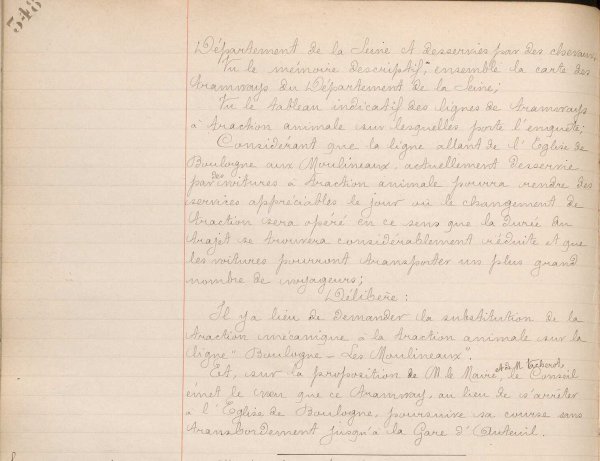 348
Département de la Seine et desservies par des chevaux;
Vu le mémoire descriptif, ensemble la carte des
tramways du Département de la Seine;
Vu le tableau indicatif des lignes de tramways
à traction animale sur lesquelles porte l'enquête;
Considérant que la ligne allant de l'Eglise de
Boulogne aux Moulineaux, actuellement desservie
par des voitures à traction animale pourra rendre des
services appréciables le jour où le changement de
traction sera opéré en ce sens que la durée du
trajet se trouvera considérablement réduite et que
les voitures pourront transporter un plus grand
nombre de voyageurs;
Délibère:
Il y a lieu de demander la substitution de la
traction mécanique à la traction animale sur la
ligne "Boulogne - Les Moulineaux".
Et, sur la proposition de M. le Maire, et de M. le Conseil
émet le vœu que ce tramway, au lieu de s'arrêter
à l'Eglise de Boulogne, poursuive sa course sans
transbordement jusqu'à la Gare d'Auteuil.